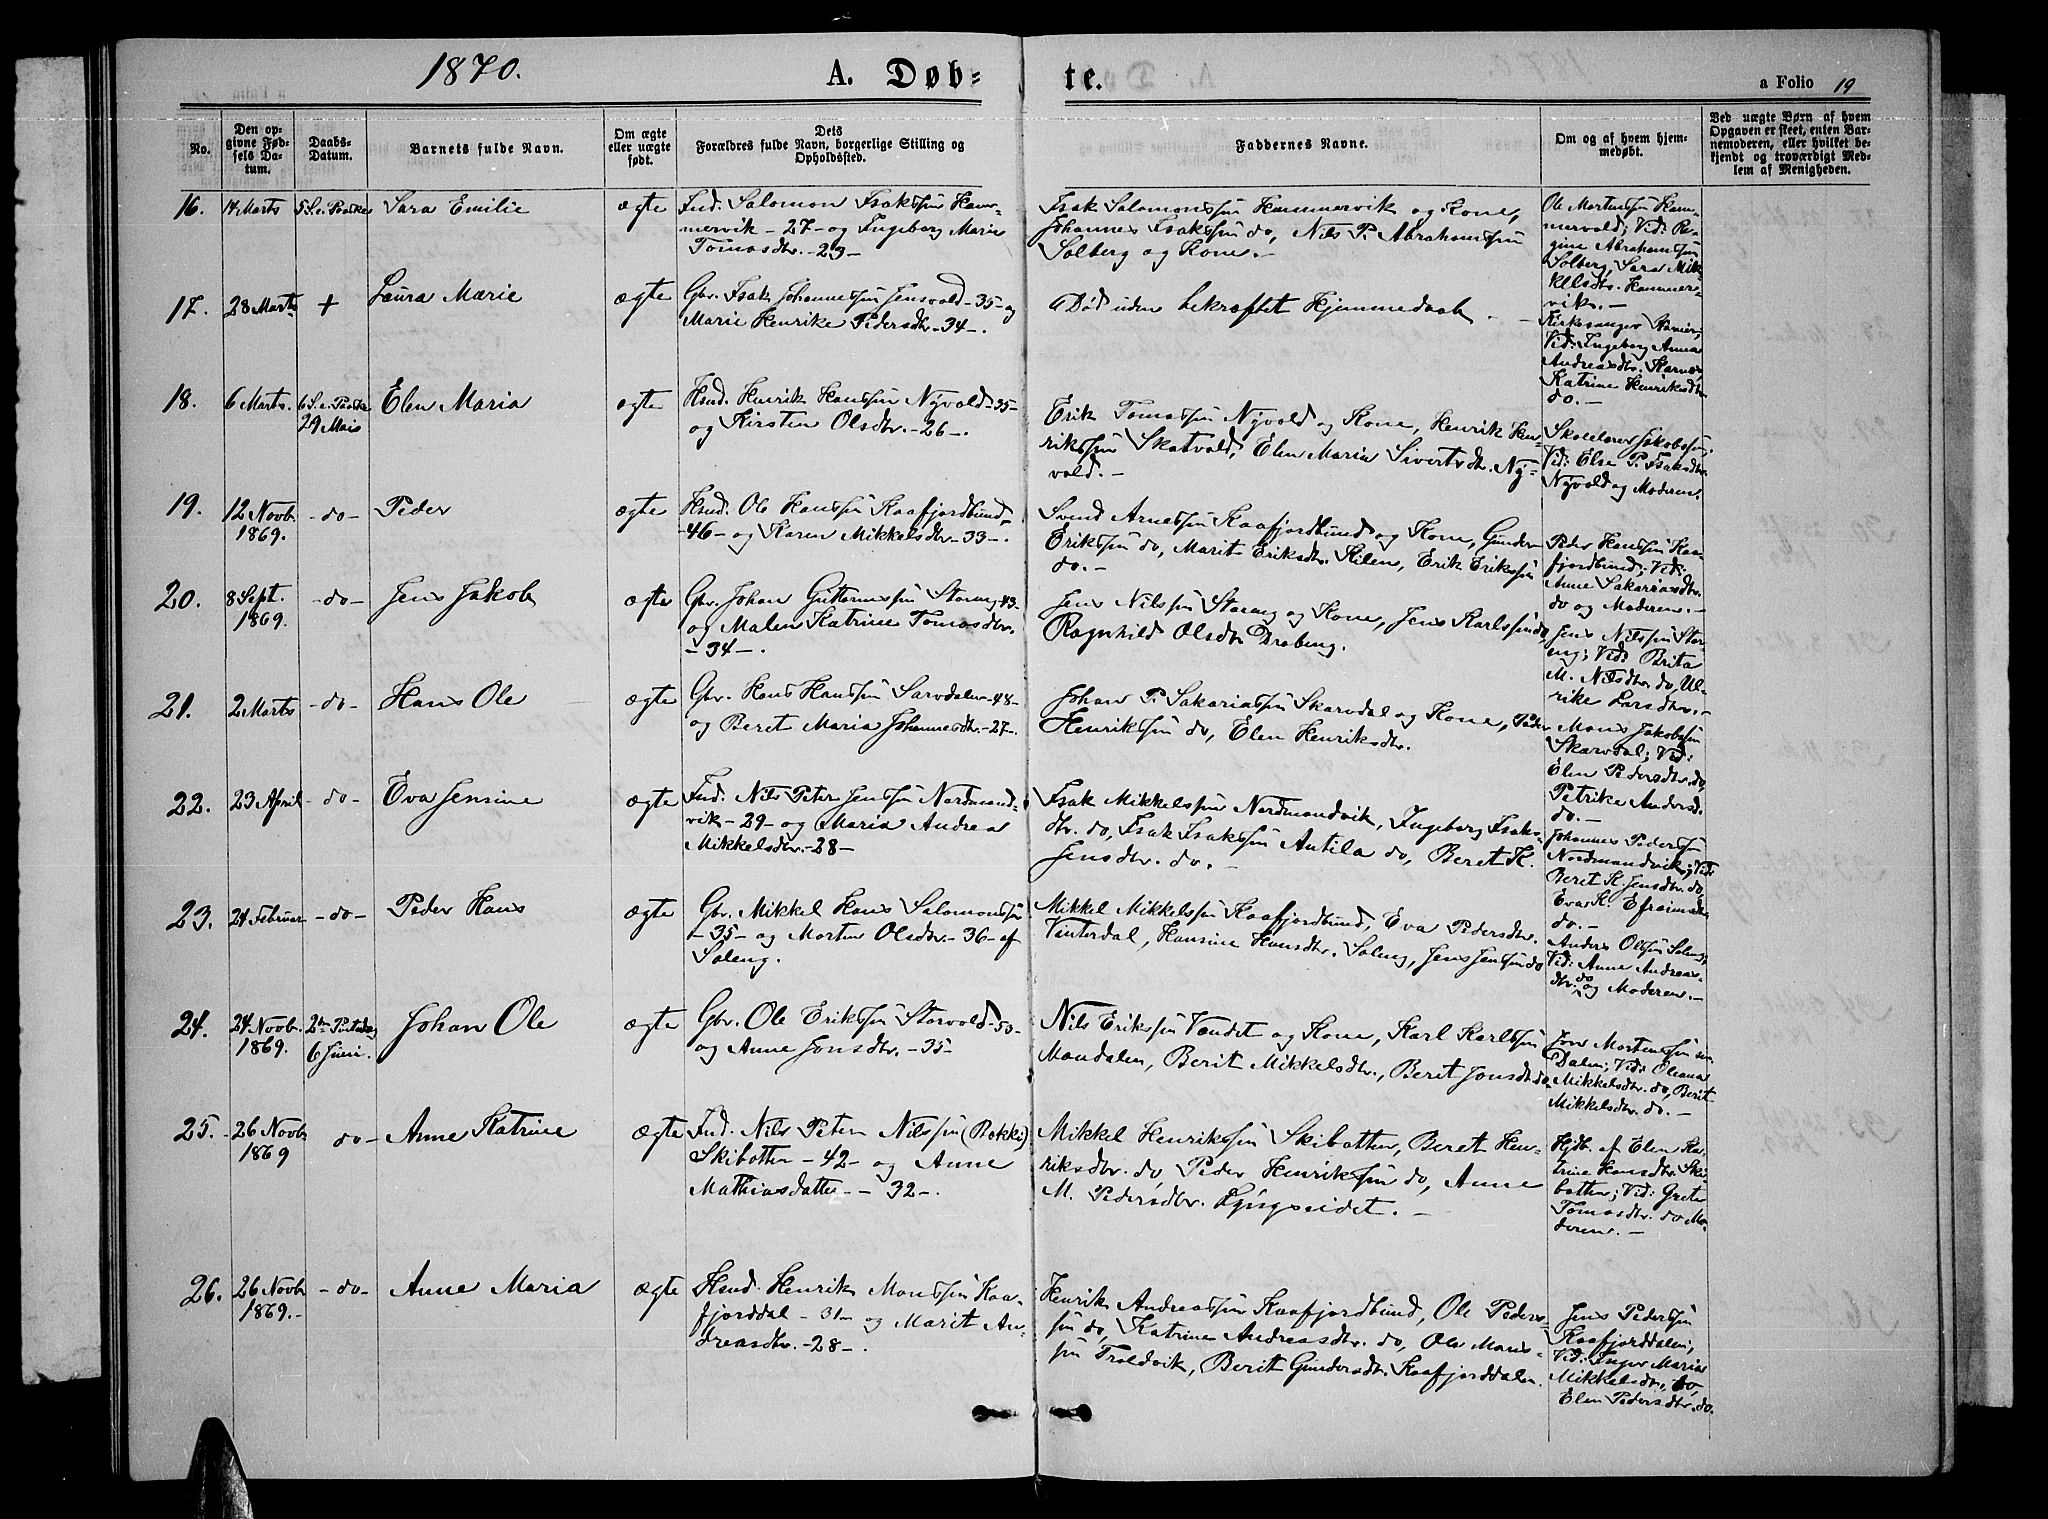 1870.
A. Døb-
te.
a Folio 19
No.
Den op-
givne Fød-
sels Da-
tum.
Daabs-
Datum.
Barnets fulde Navn.
Om ægte
eller uægte
født.
Dets
Forældres fulde Navn, borgerlige Stilling og
Opholdssted.
Faddernes Navne.
Om og af hvem hjem-
medøbt.
Ved uægte Børn af hvem
Opgaven er skeet, enten Bar-
nemoderen, eller hvilket be-
kjendt og troværdigt Med-
lem af Menigheden.
16.
14 Marts
5 S. e. Paaske
Sara Emilie
ægte
Ind. Salomon Isakssøn Ham-
mervik -27- og Ingeborg Marie
Tomasdtr. -23-
Isak Salomonssøn Hammervik og Kone,
Johannes Isakssøn do, Nils P. Abrahamssøn
Solberg og Kone.-
Ole Mortenssøn Ham-
mervold; Vid: Re-
gine Abrahamssøn
Solberg, Sara Mik-
kelsdtr. Hammer-
vik.-
17.
28 Marts
+
Laura Marie
ægte
Gbr. Isak Johannessøn Jensvold -35- og
Marie Henrike Pedersdtr. -34-.
Død uden bekræftet Hjemmedaab.-
Kirkesanger
Vid: Ingeborg Anna
Andreasdtr. Karnes,
Katrine Henriksdtr
do.-
18.
6 Marts.
6 S. e. Paaske
29 Mais
Elen Maria
ægte
Hsnd. Henrik Hanssøn Nyvold -35-
og Kirsten Olsdtr. -26-.
Erik Tomassøn Nyvold og Kone, Henrik Hen-
rikssøn Skatvold, Elen Maria Sivertsdtr. Ny-
vold.-
Skolelærer Jakobssøn;
Vid: Else P. Isaksdtr.
Nyvold og Moderen.
19.
12 Novb.
1869.
-do-
Peder
ægte
Hsnd. Ole Hanssøn Kaafjordbund,
-46- og Karen Mikkelsdtr. -33-.
Svend Arnessøn Kaafjordbund og Kone, Gunder
Erikssøn do, Marit Eriksdtr. Kilen, Erik Erikssøn
do.-
Peder Hanssøn Kaa-
fjordbund; Vid:
Anne Sakariasdtr.
do og Moderen.-
20.
8 Sept.
1869.
-do-
Jens Jakob
ægte
Gbr. Johan Guttormssøn Storeng -43-
og Malen Katrine Tomasdtr.
-34-.
Jens Nilssøn Storeng og Kone, Jens Karlssøn do,
Ragnhild Olsdtr
Jens Nilssøn Stor-
eng; Vid: Brita
M. Nilsdtr. do, Ul-
rike Larsdtr.-
21.
2 Marts
-do-
Hans Ole
ægte
Gbr. Hans Hanssøn Sarvdalen -48-
og Beret Maria Johannesdtr. -27-.
Johan P. Sakariassøn Skarvdal og Kone, Peder
Henrikssøn do, Elen Henriksdtr.
Mons Jakobssøn
Skarvdal; Vid:
Elen Pedersdtr. do,
Petrike Andersd.
do.-
22.
23 April
-do-
Eva Jensine
ægte
Ind. Nils Peter Jenssøn Nordmand-
vik -29- og Maria Andrea
Mikkelsdtr. -28-
Isak Mikkelssøn Nordmandvik, Ingeborg Isaks-
dtr. do, Isak Isakssøn Antila do, Beret K.
Jensdtr. do.
Johannes Pederssøn
Nordmandvik; Vid:
Beret K. Jensdtr. do,
Eva K. Efraimsdtr
do.-
23.
24 Februar
-do-
Peder Hans
ægte
Gbr. Mikkel Hans Salomonssøn
-35- og Morten Olsdtr. -36- af
Soleng.
Mikkel Mikkelssøn Kaafjordbund, Eva Pedersdtr.
Vinterdal, Hansine Hansdtr. Soleng, Jens Jenssøn do
Anders Olssøn Soleng;
Vid: Anne Andreas-
dtr. do og Moderen.-
24.
24. Novb.
1869.
2den Pintsdag
6 Juni.
Johan Ole
ægte
Gbr. Ole Erikssøn Storvold -53-
og Anne Jonsdtr. -35-
Nils Erikssøn Vandet og Kone, Karl Karlssøn
Mandalen, Berit Mikkelsdtr., Beret Jonsdtr do.
Jon Mortenssøn
Dalen; Vid: Oleana
Mikkelsdtr. do, Berit
Mikkelsdtr. do.-
25.
26 Novb.
1869
do-
Anne Katrine
ægte
Ind. Nils Peter Nilssøn (Bakki)
Skibotten -42- og Anne
Mathiasdatter -32-.
Mikkel Henrikssøn Skibotten, Beret Hen-
riksdtr. do, Peder Henrikssøn do, Anne
M. Pedersdtr. Lyngseidet.-
Hjdb. af Elen Ka-
trine Hansdtr. Ski-
botten; Vid: Grete
Tomasdtr. do Mo-
deren.-
26.
26 Novb
1869.-
-do-
Anne Maria
ægte
Hsnd. Henrik Monssøn Kaa-
fjorddal -31- og Marit An-
dreasdtr. -28-.
Henrik Andreassøn Kaafjordbund, Ole Peders-
søn do, Katrine Andreasdtr. do, Ole Mons-
søn Troldvik, Berit Gundersdtr. Kaafjorddalen.
Jens Pederssøn
Kaafjorddalen;
Vid: Inger Maria
Mikkelsdtr. do,
Elen Pedersdtr. do.